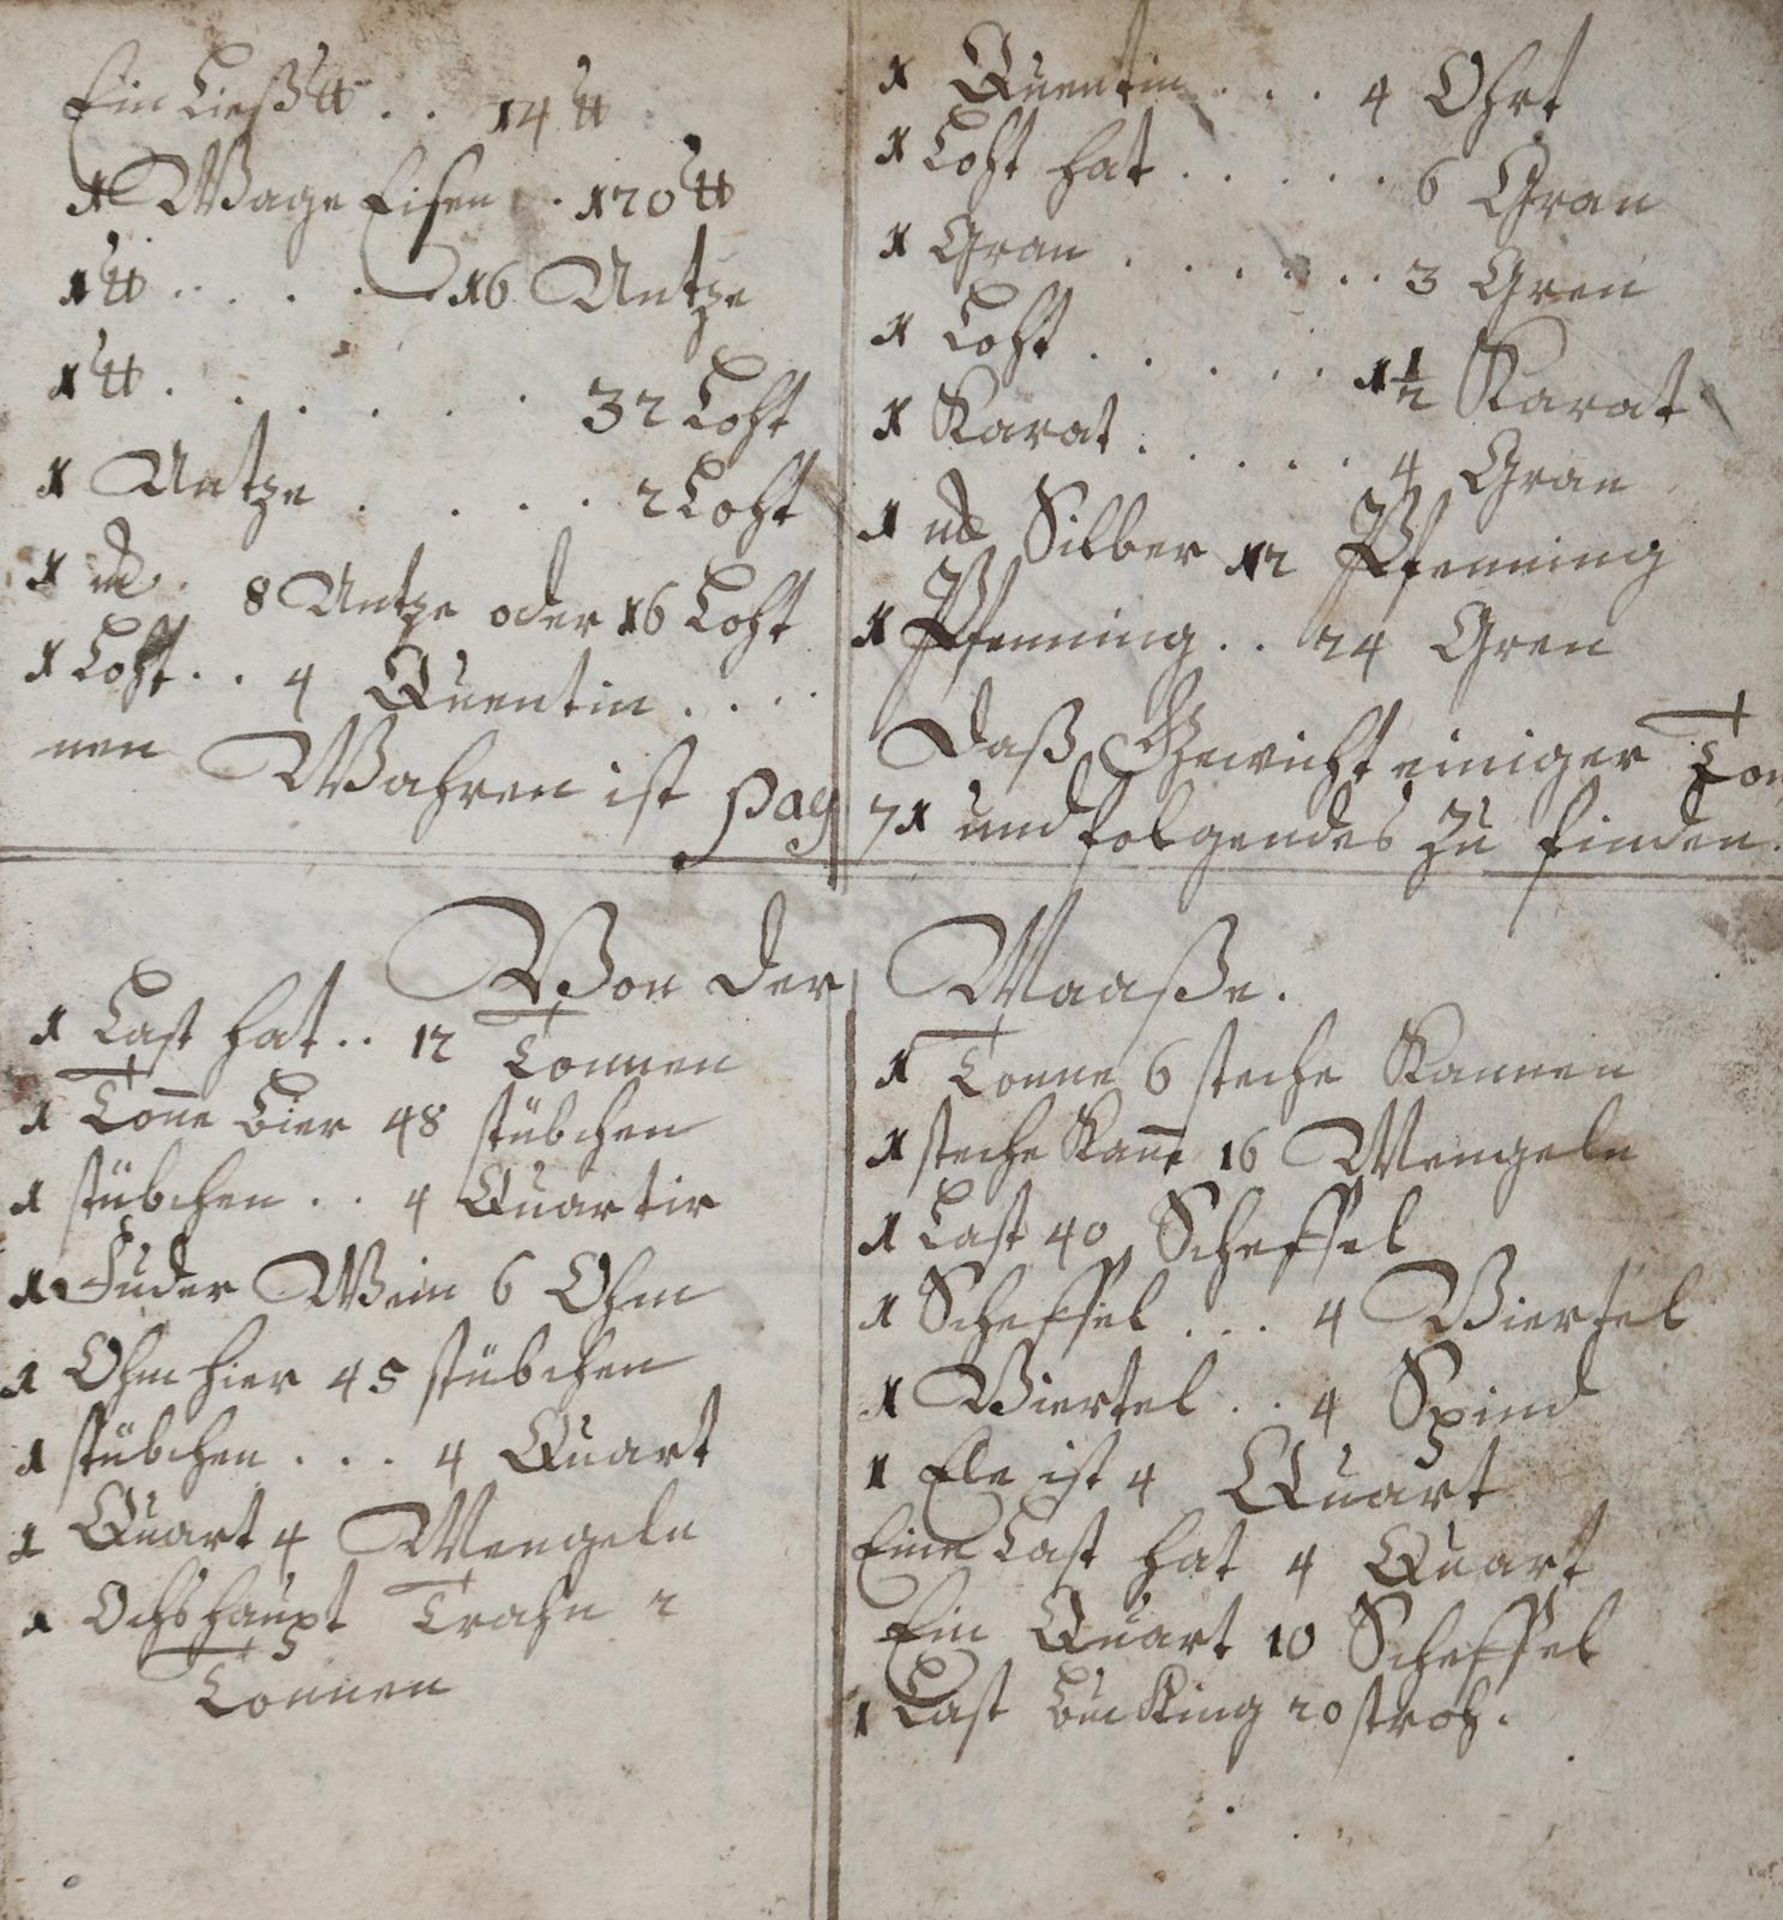 Ein Ließ℔ . . 14 ℔
1 Wage Eisen . 120 ℔
1 ℔ . . . . 16 Untze
1 ℔ . . . . . . 32 Loht
1 Untze . . . . 2 Loht
1 m̃. 8 Untze oder 16 Loht
1 Loht . . 4 Quentin . . .
1 Quentin . . . 4 Ohrt
1 Loht hat . . . . . 6 Gran
1 Gran . . . . . . 3 Gren
1 Loht . . . . . 1 1/2 Karat
1 Karat . . . . . 4 Gran
1 m̃ Silber 12 Pfenning
1 Pfenning . . 24 Gren
Daß Gewicht einiger Ton
nen Wahren ist pag
71 und folgendes zu finden.
Von der Maaße.
1 Last hat . . 12 Tonnen
1 Toñe Bier 48 stübchen
1 stübchen . . 4 Quartir
1 Fuder Wein 6 Ohm
1 Ohm hier 45 stübchen
1 stübchen . . . 4 Quart
1 Quart 4 Mengeln
1 Ochshaupt Trahn 2
Tonnen
1 Tonne 6 steche Kannen
1 steche Kañe 16 Mengeln
1 Last 40 Scheffel
1 Scheffel . . . 4 Viertel
1 Viertel . . 4 Spind
1 Ele ist 4 Quart
Eine Last hat 4 Quart
Ein Quart 10 Scheffel
1 Last Bücking 20 stroh.